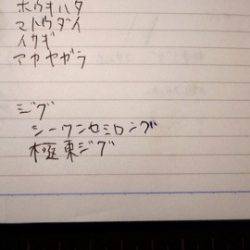 ホウキハタ
マトウダイ
イサギ
アカヤガラ
ジグ
シーワンセミロング
極東ジグ